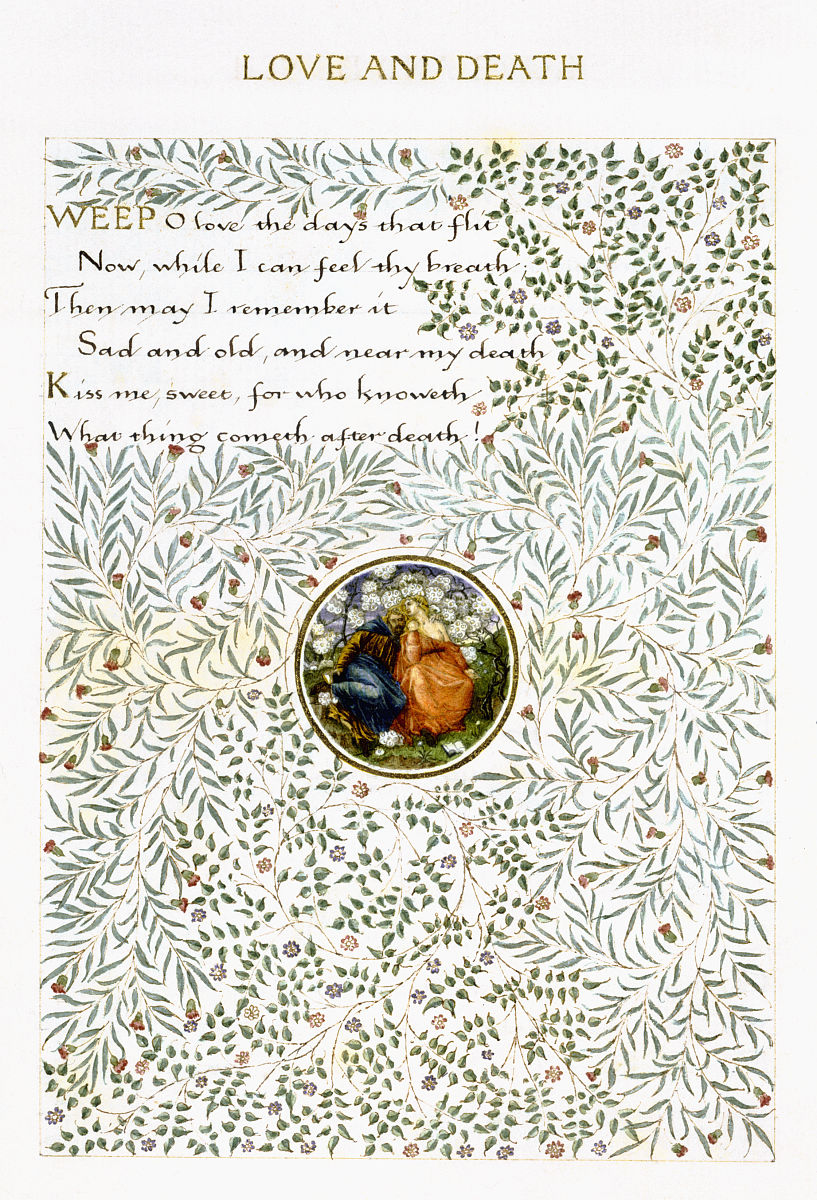 LOVE AND DEATH
WEEP O love the days that flit
Now, while I can feel thy breath,
Then may I remember it
Sad and old, and near my death
Kiss me, sweet, for who knoweth
What thing cometh after death!